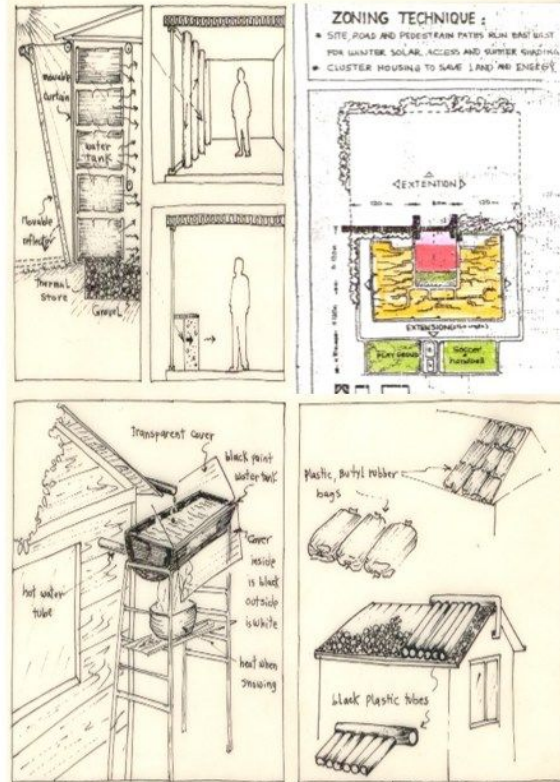 movable
curtain
water
tank
Movable
reflector
Thermal
store
Gravel
ZONING TECHNIQUE :
SITE, ROAD AND PEDESTRAIN PATHS RUN EAST WEST
FOR WINTER SOLAR, ACCESS AND SUMMER SHADING
CLUSTER HOUSING TO SAVE LAND AND ENERGY
EXTENTION
EXTENSION
PLAY GROUND
Soccer
handball
Transparent cover
black paint
water tank
Cover
inside
is black
outside
is white
hot water
tube
heat when
snowing
plastic, Butyl rubber
bags
black plastic tubes